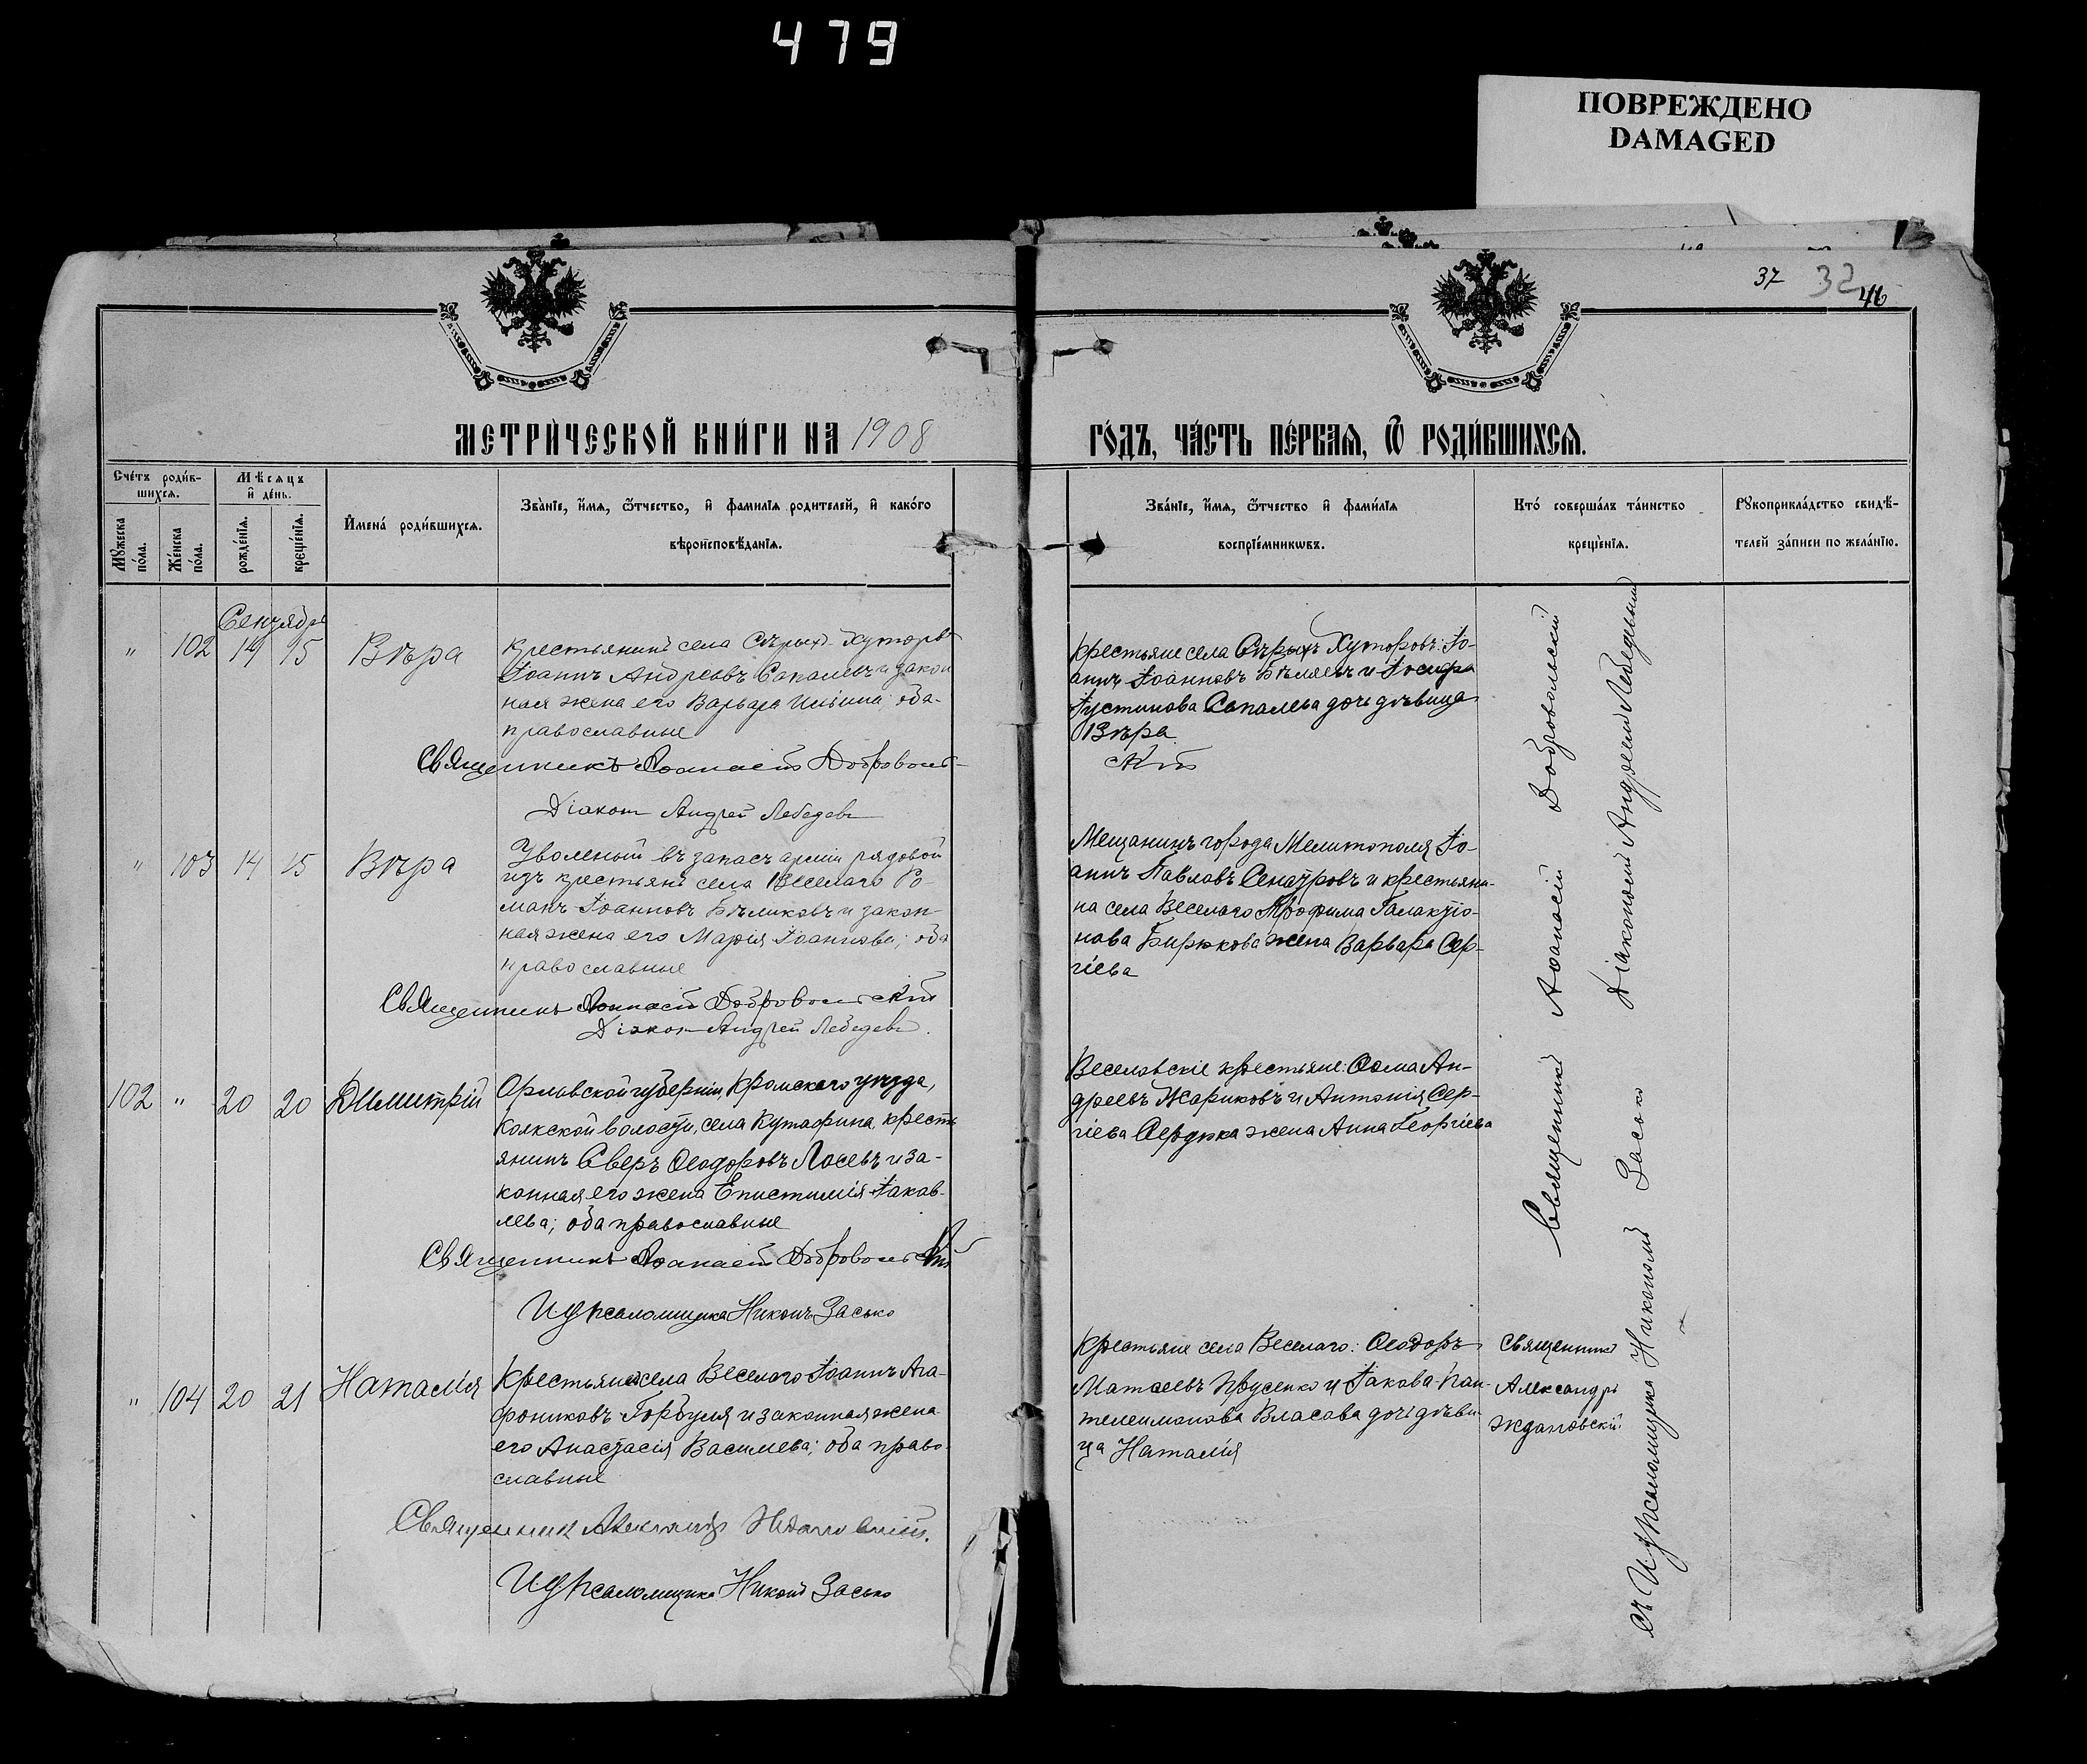 479
ПОВРЕЖДЕНО
DAMAGED
37 32 46
МЕТРИ́ЧЕСКОЙ КНИ́ГИ НА 1908
ГО́ДЪ, ЧА́СТЬ ПЕ́РВАѦ, Ѿ РОДИ́ВШИХСѦ.
Сче́тъ роди́в-
шихсѧ.
Мѣсѧцъ
и҆ де́нь.
Мꙋ́жеска
по́ла.
Же́нска
по́ла.
рожде́нїѧ.
креще́нїѧ.
И҆мена́ роди́вшихсѧ.
Зва́нїе, и҆́мѧ, ѻ҆́тчество, и҆ фамилїѧ родителей, и҆ како́го
вѣроисповѣ́данїѧ.
Зва́нїе, и҆́мѧ, ѻ҆́тчество и҆ фами́лїѧ
воспрїе́мникѡвъ.
Кто́ соверша́лъ та́инство
креще́нїѧ.
Рꙋкоприкла́дство свидѣ́-
телей за́писи по жела́нїю.
Сентябрь
" 102 14 15 Вѣра
Крестьянинъ села Сѣрыхъ-Хуторовъ
Іоаннъ Андреевъ Сапалевъ и закон
ная жена его Варвара Ильина; оба-
православные
Священникъ Аѳанасій Доброволь-
скій
Діаконъ Андрей Лебедевъ
Крестьяне села Сѣрыхъ Хуторовъ: Іо-
аннъ Іоанновъ Бѣляевъ и
Іустинова Сапалева дочь дѣвица
Вѣра
" 103 14 15 Вѣра
Уволеный въ запасъ арміи рядовой
изъ крестьянъ села Веселаго Ро-
манъ Іоанновъ Бѣликовъ и закон-
ная жена его Марія Іоаннова; оба
православные
Священникъ Аѳанасій Добровольскій
Діаконъ Андрей Лебедевъ.
Мещанинъ города Мелитополя Іо-
аннъ Павловъ Сенатровъ и крестьяни-
на села Веселаго Трофима Галактіо-
нова Бирюкова жена Варвара Сер-
гіева
102 " 20 20 Димитрій
Орловской губерніи, Кромскаго уѣзда,
волости, села Кутафина, кресть
янинъ Сверъ Ѳеодоровъ Лосевъ и за-
конная его жена Епистимія Іаков-
лева; оба православные
Священникъ Аѳанасій Добровольскій
И.д. псаломщика Никонъ Засько
Веселовскіе крестьяне: Ѳома Ан-
дреевъ Жариковъ и Антонія Сер-
гіева Сердюка жена Анна Георгіева
" 104 20 21 Наталія
Крестьяне села Веселаго Іоаннъ Ага-
фониковъ Горбуля и законная жена
его Анастасія Васильева; оба право-
славные
Священник Александр Ждановскій.
И.д. псаломщика Никонъ Засько
Крестьяне села Веселаго: Ѳеодоръ
Матѳеевъ Прусенко и Іакова Пан-
телеимонова Власова дочь дѣви-
ца Наталія
Священникъ
Александръ
Ждановскій
Священникъ Аѳанасій Добровольскій
Діакономъ Андреемъ Лебедевымъ
съ И.д. псаломщика Никономъ Засько